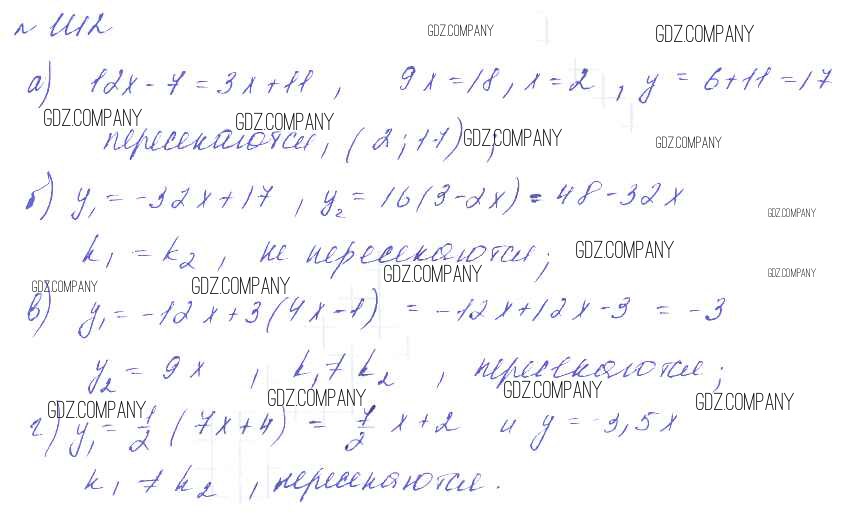 № 1112
GDZ.COMPANY
GDZ.COMPANY
а) 12x - 7 = 3x + 11 , 9x = 18 , x = 2 , y = 6 + 11 = 17
GDZ.COMPANY
GDZ.COMPANY
GDZ.COMPANY
GDZ.COMPANY
пересекаются, (2 ; 17) ;
б) y₁ = -32x + 17 , y₂ = 16(3 - 2x) = 48 - 32x
GDZ.COMPANY
k₁ = k₂ , не пересекаются ;
GDZ.COMPANY
GDZ.COMPANY
GDZ.COMPANY
GDZ.COMPANY
GDZ.COMPANY
в) y₁ = -12x + 3(4x - 1) = -12x + 12x - 3 = -3
y₂ = 9x , k₁ ≠ k₂ , пересекаются ;
GDZ.COMPANY
GDZ.COMPANY
GDZ.COMPANY
GDZ.COMPANY
г) y₁ = 1/2 (7x + 4) = 7/2 x + 2 и y = -3,5x
k₁ ≠ k₂ , пересекаются.